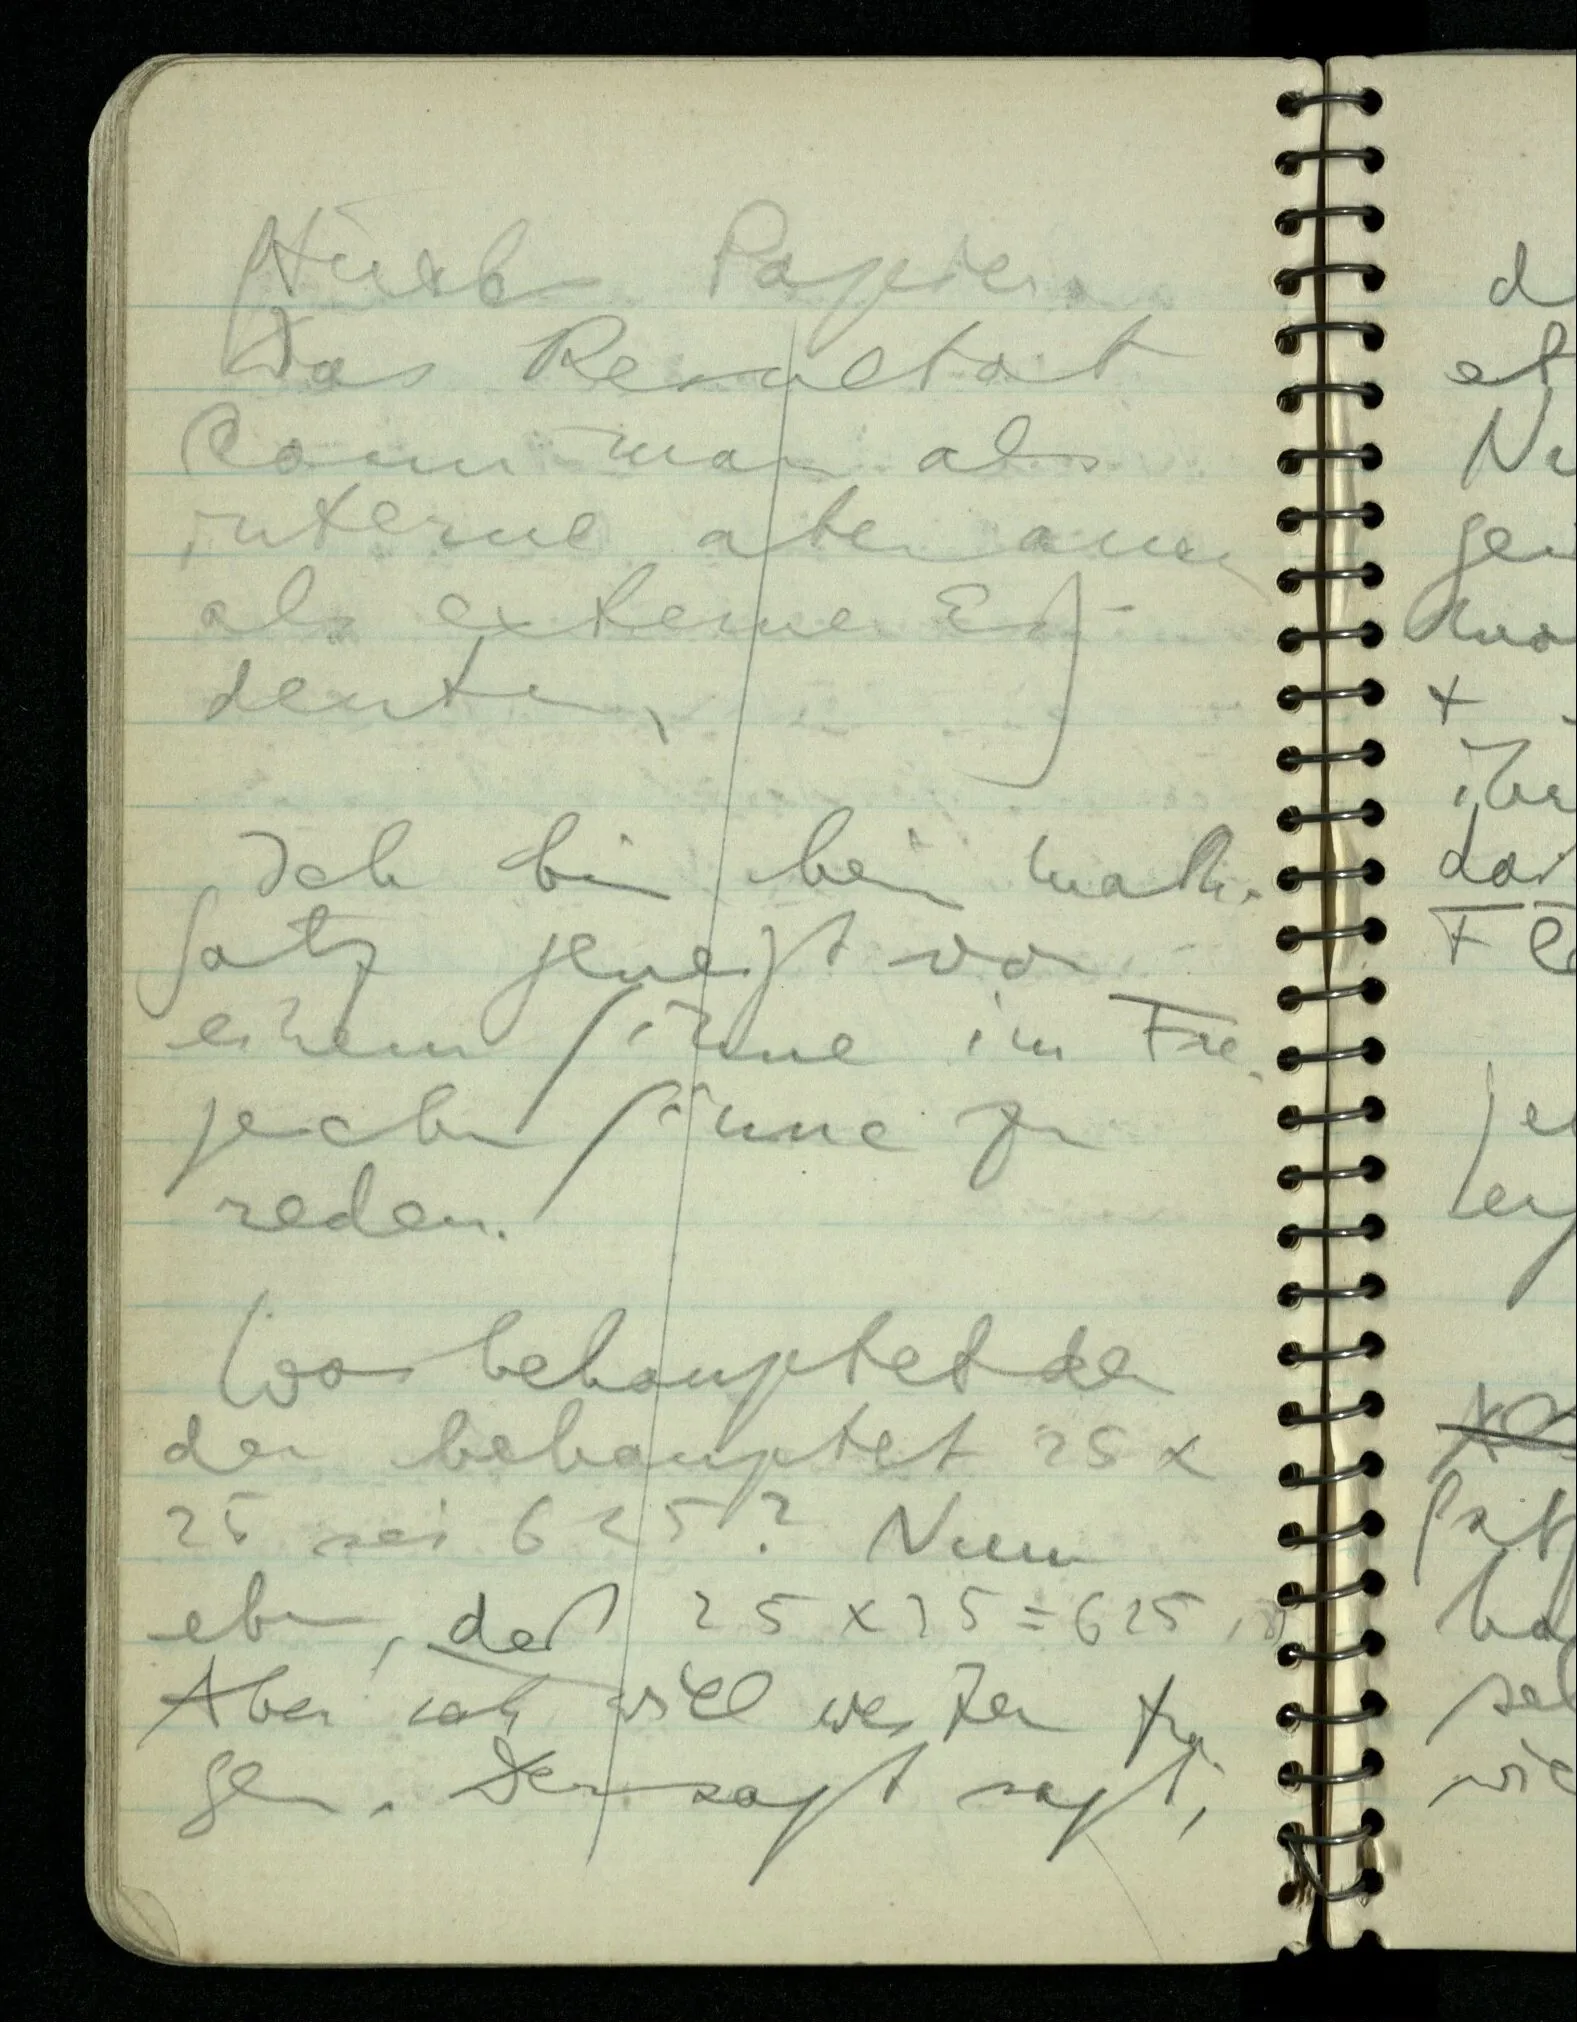 Papier.
Das Resultat
kann man als
interne aber auch
als externe Ev-
denten,
Ich bin beim math.
Satz geneigt von
einem Sinne im Fre-
geschen Sinne zu
reden.
Was behauptet der
der behauptet 25 x
25 sei 625? Nun
eben, daß 25 x 25 = 625
Aber ich will weiter fra-
gen. Der sagt sagt,
d
et
Nu
ge
+
da
F
je
ha
se
wie